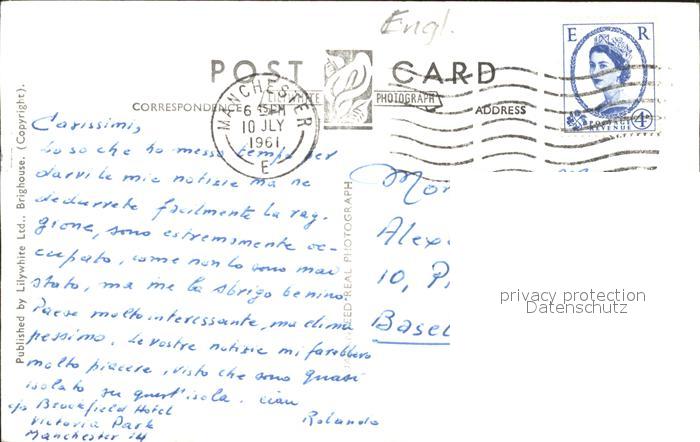 Engl.
E R
POSTAGE
REVENUE 4D
POST CARD
LILYWHITE PHOTOGRAPH
CORRESPONDENCE
ADDRESS
MANCHESTER
6 15 PM
10 JLY
1961
E
Published by Lilywhite Ltd., Brighouse. (Copyright).
REAL PHOTOGRAPH
Carissimi,
Lo so che ho messo tempo per
darvi le mie notizie ma ne
dedurrete facilmente la rag-
gione, sono estremamente oc-
cupato, come non lo sono mai
stato, ma me la sbrigo benino.
Paese molto interessante, ma clima
pessimo. Le vostre notizie mi farebbero
molto piacere, visto che sono quasi
isolato su quest'isola. Ciau
Rolando
c/o Brookfield Hotel
Victoria Park
Manchester 14
Alex.
10, P
Basel
privacy protection
Datenschutz